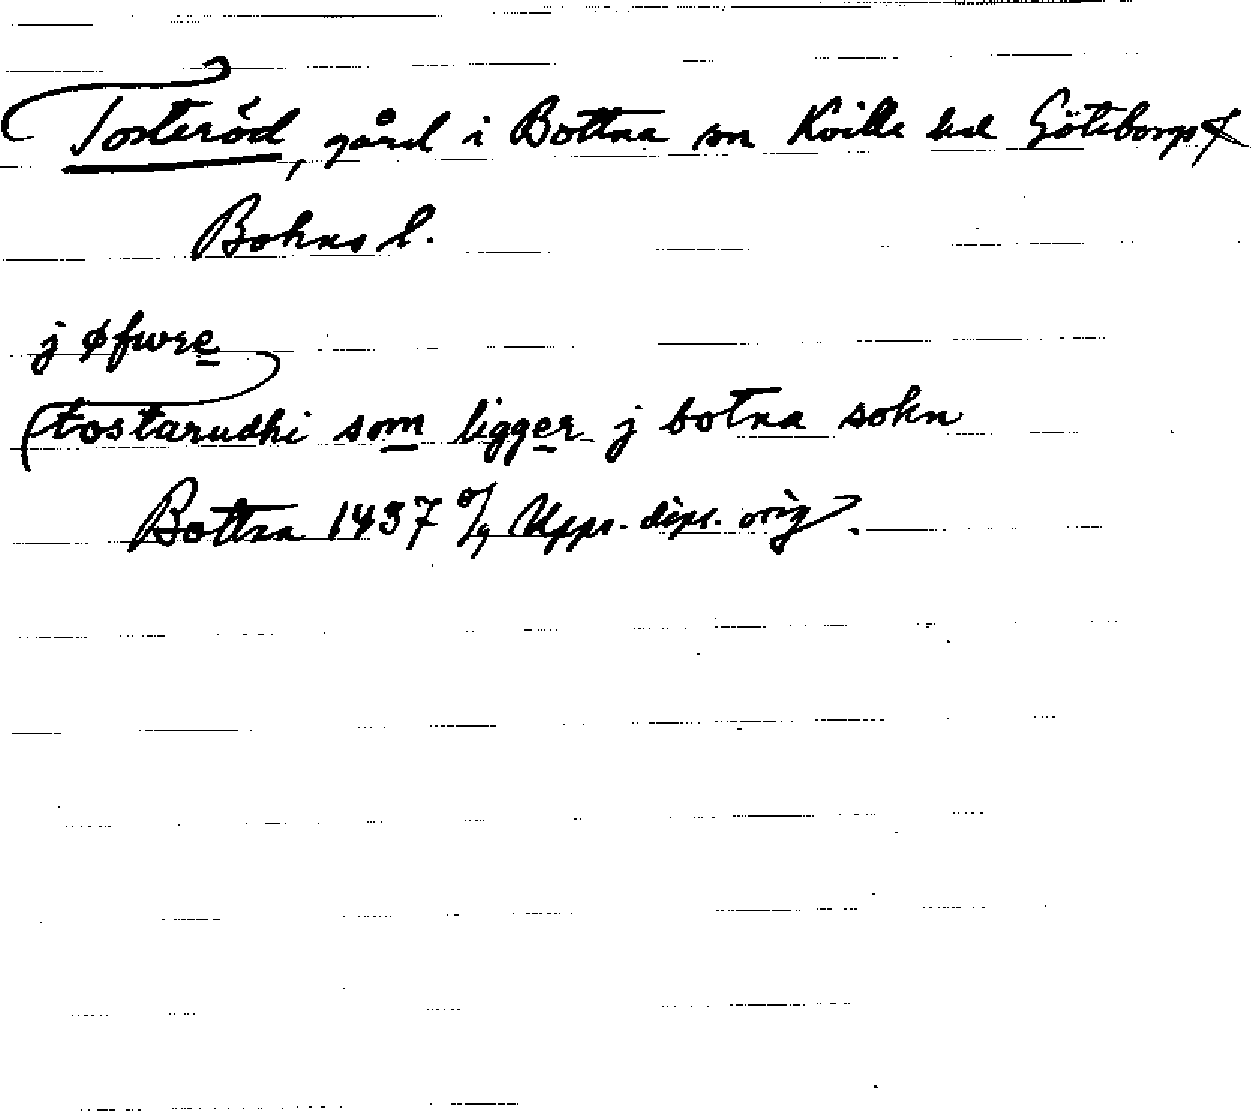 Tosteröd, gård i Bottna sn Kville hd Göteborgs &
Bohus l.
j øfwre
tostarudhi som ligger j botna sokn
Bottna 1437 Upps. dipl. orig.